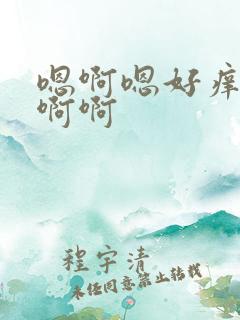 嗯啊嗯好痒
啊啊
程宇清
未经同意禁止转载